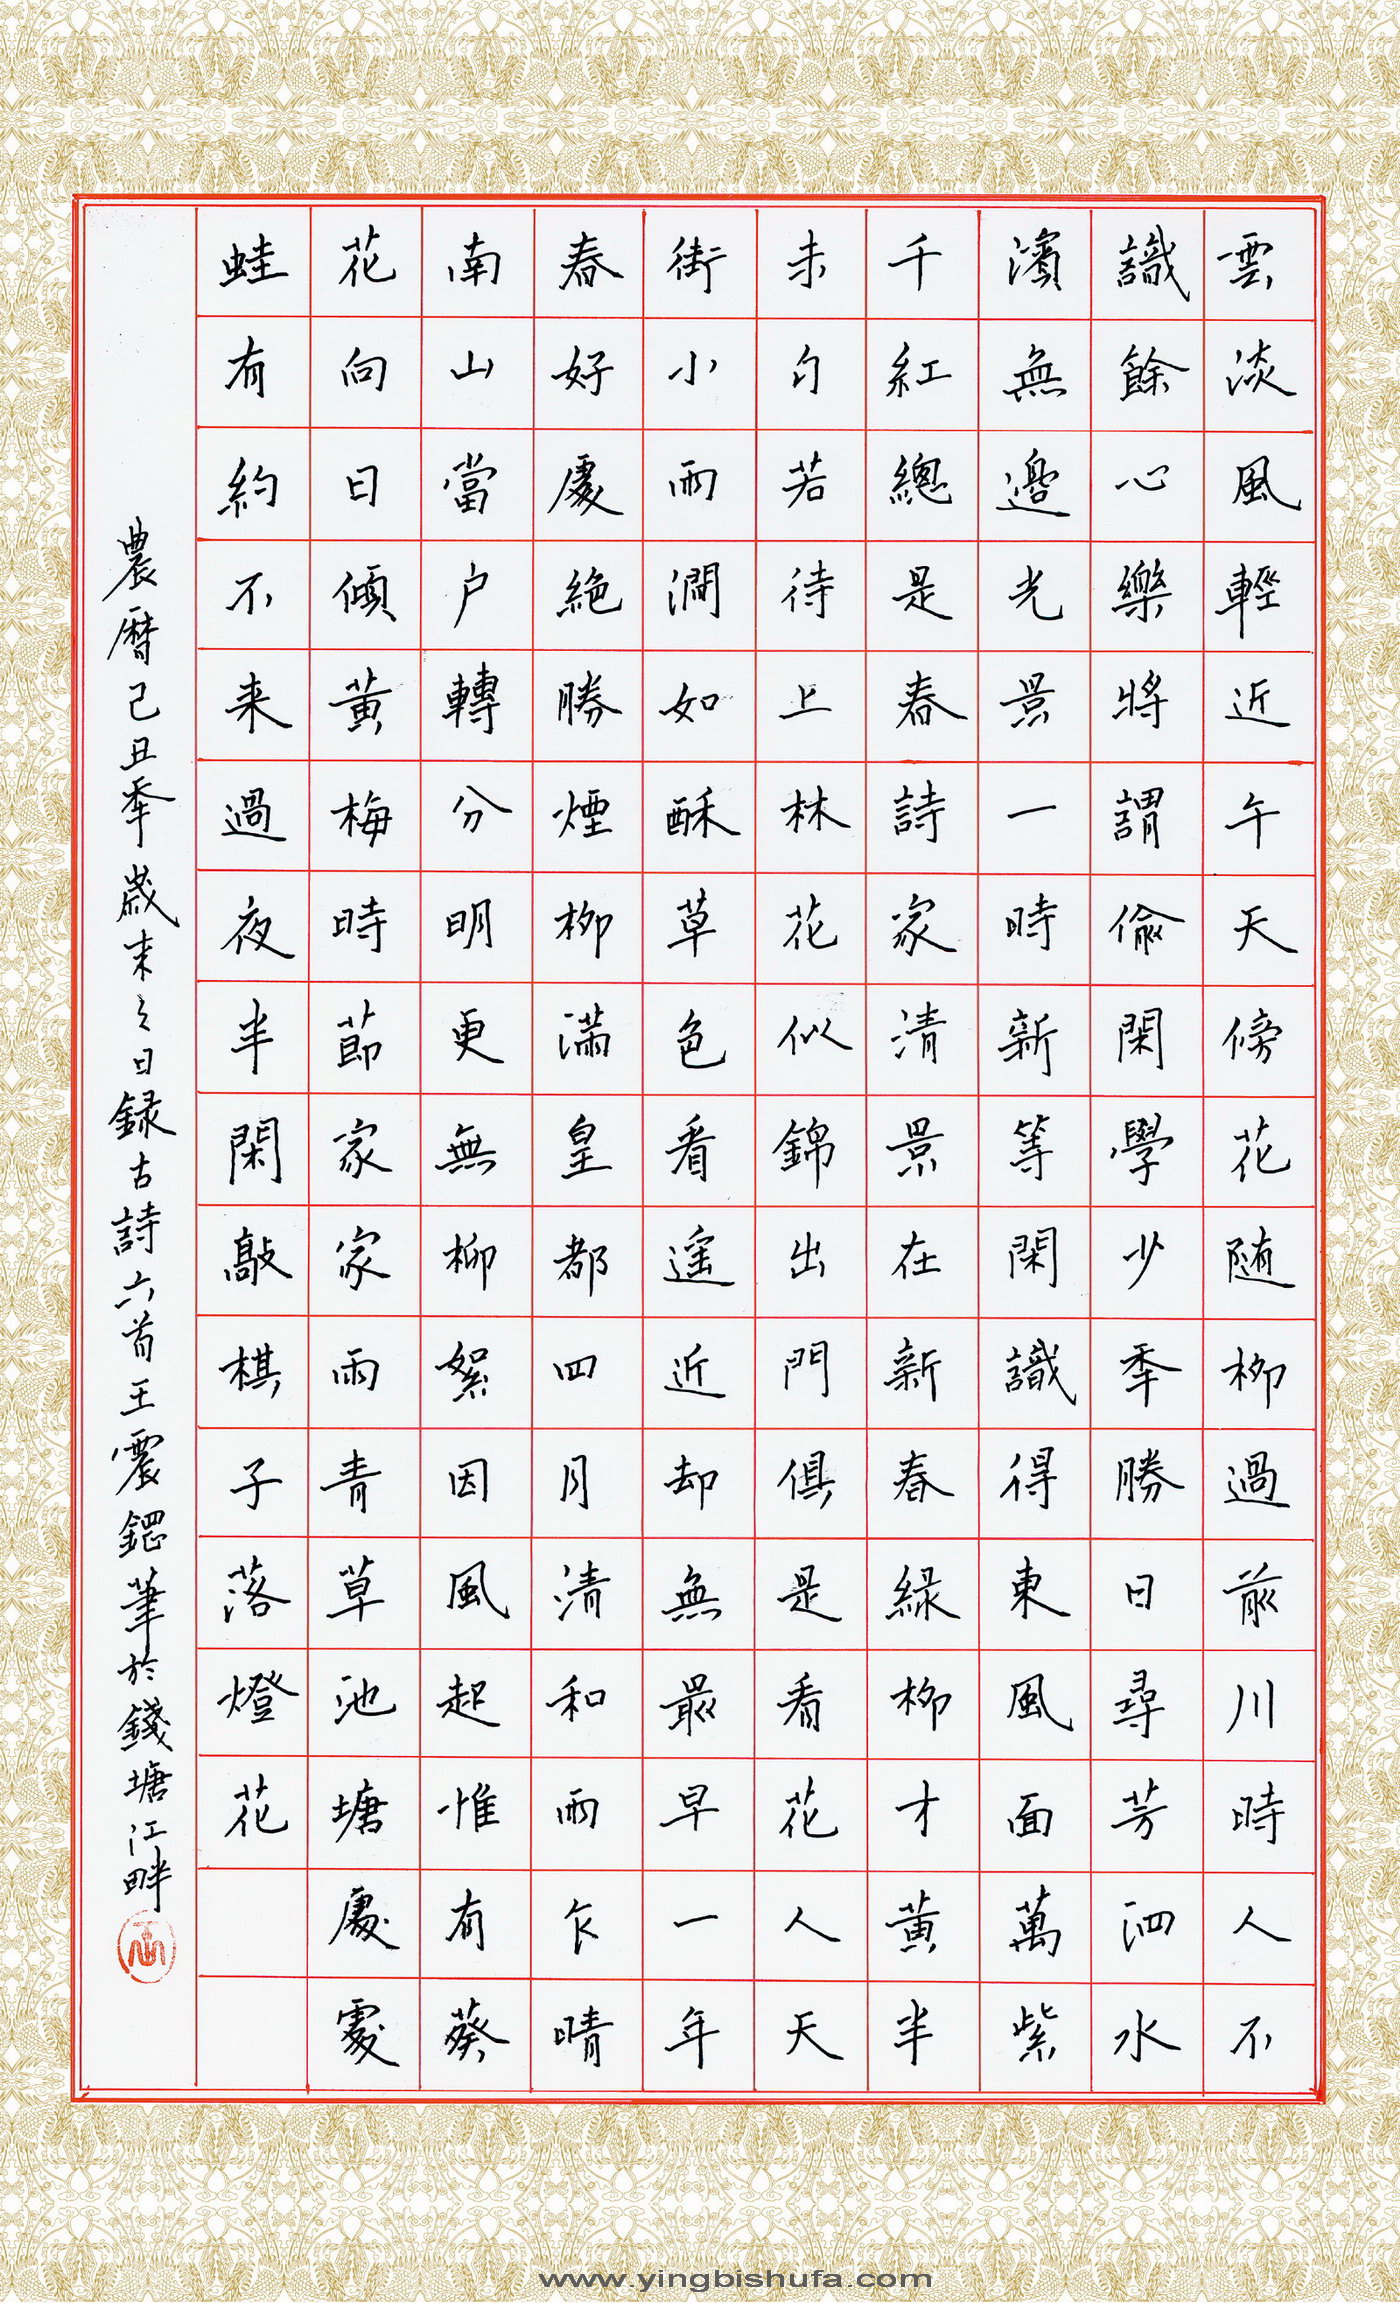 雲淡風輕近午天傍花随柳過前川時人不
識餘心樂將謂偷閑學少秊勝日尋芳泗水
濱無邊光景一時新等閑識得東風面萬紫
千紅總是春詩家清景在新春緑柳才黄半
未匀若待上林花似錦出門俱是看花人天
街小雨澗如酥草色看遥近却無最早一年
春好處絶勝煙柳滿皇都四月清和雨乍晴
南山當户轉分明更無柳絮因風起惟有葵
花向日傾黄梅時節家家雨青草池塘處處
蛙有約不来過夜半閑敲棋子落燈花
農曆己丑秊歲末之日録古詩六首王震筆於錢塘江畔
www.yingbishufa.com